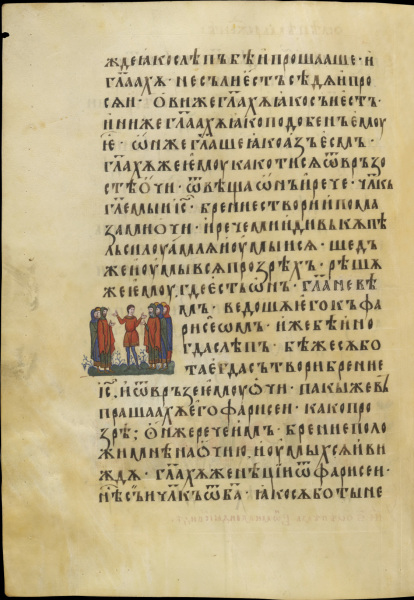 ждеꙗкослѣпъбѣипрошааше · и
гл҃аахѫ · несълиестъсѣдѧипро
сѧи · ѡвижегл҃ахѫꙗкосънестъ ·
инижегл҃аахѫꙗкоподобенъемоу
ѥ · ѡнжегл҃ашеꙗкоазъесмъ ·
гл҃ахѫжеѥмоукакотисѧѿвръзо
стеѡчи · ѿвѣщаѡнъирече · чл҃къ
гл҃емыиіс҃ · брениесътвориипома
замиѡчи · иречемиидивъкѫпѣ
льсилоуамлѧиоумыисѧ · шед
жеиоумывсѧпрозрѣхъ · рѣшѧ
жеѥмоу гдеестьѡнъ · гл҃аневѣ
мъ · ведошѧегокъфа
рисеѡмъ · ижебѣино
гдаслѣпъ · бѣжесѫбо
таегдасътворибрение
іс҃ · иѿвръзеемоуѡчи · пакыжевъ
прашаахѫегофарисеи · какопро
зрѣ ; ѡнжеречеимъ · брениеполо
жимнѣнаѡчию · иоумыхсѧиви
ждѫ · гл҃ахѫженѣцииѿфарисеи ·
нѣсъичл҃къѿба҃ · ꙗкосѫботыне